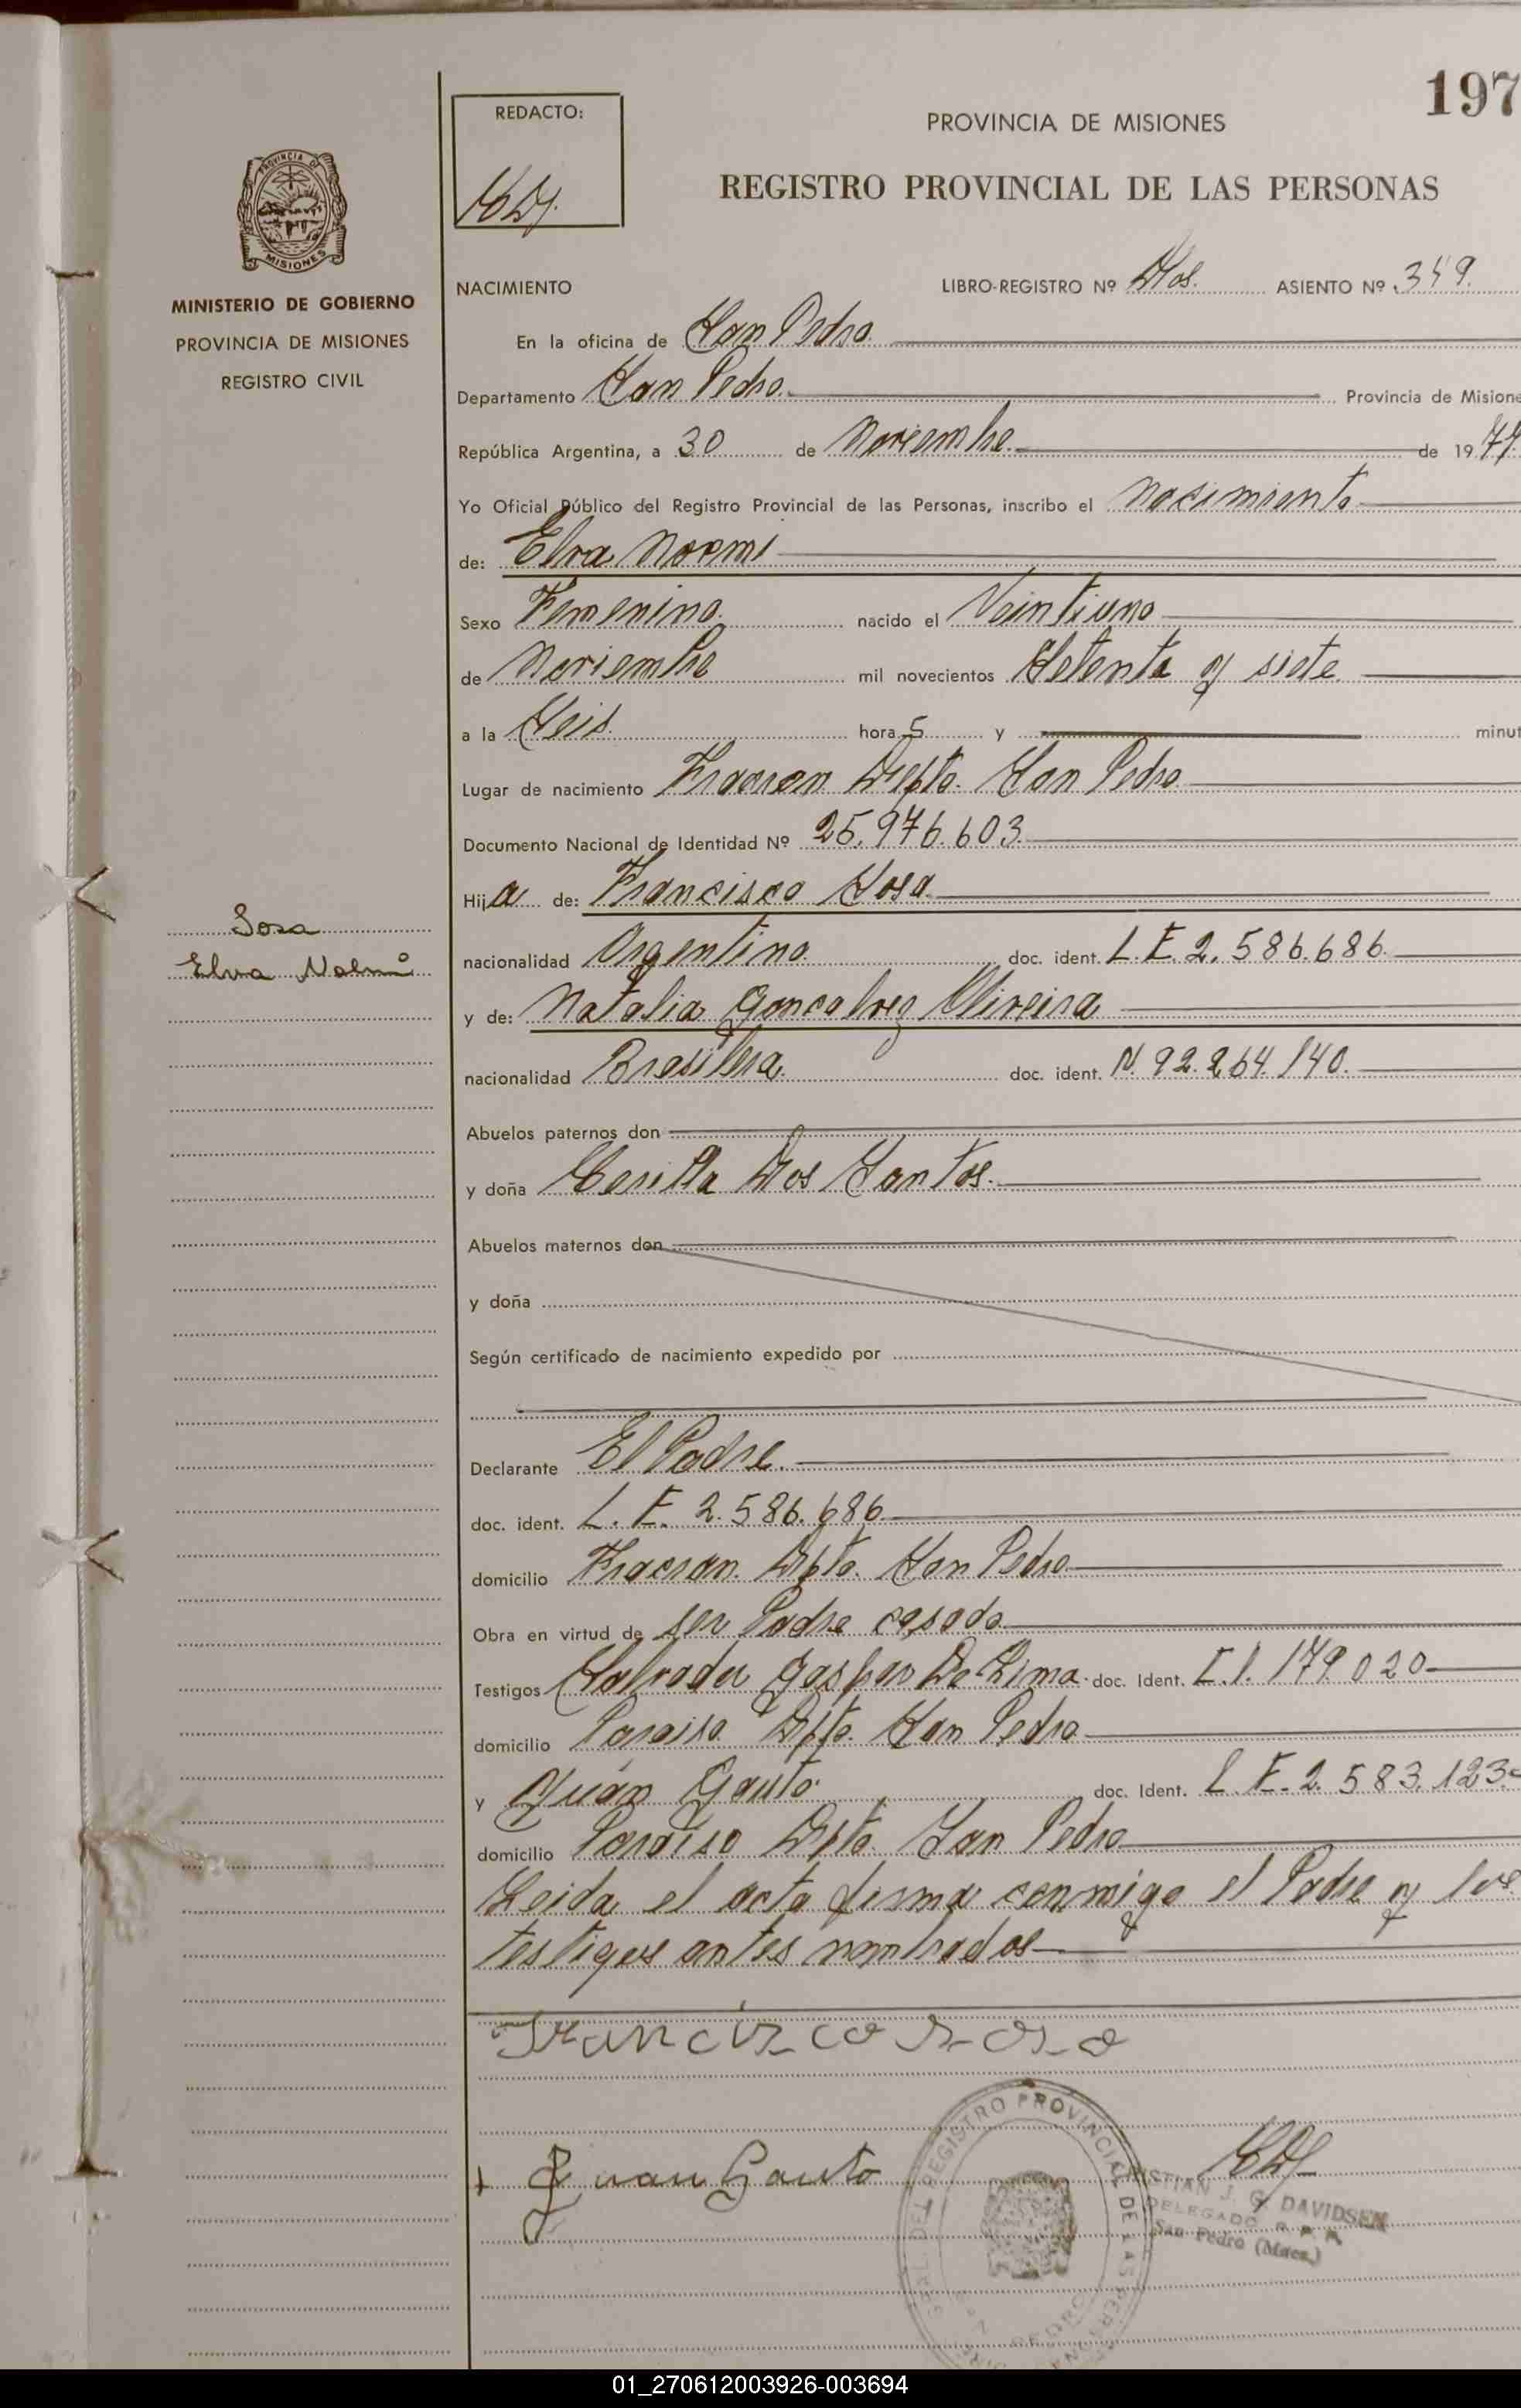 197
REDACTO:
PROVINCIA DE MISIONES
REGISTRO PROVINCIAL DE LAS PERSONAS
PROVINCIA DE
MISIONES
MINISTERIO DE GOBIERNO
PROVINCIA DE MISIONES
REGISTRO CIVIL
NACIMIENTO LIBRO-REGISTRO Nº Dos. ASIENTO Nº 349.
En la oficina de San Pedro.
Departamento San Pedro. Provincia de Misione
República Argentina, a 30 de Noviembre. de 1977.
Yo Oficial Público del Registro Provincial de las Personas, inscribo el Nacimiento
de: Elva Noemi
Sexo Femenino. nacido el Veintiuno
de Noviembre mil novecientos Setenta y siete.
a la Seis. hora s y minut
Lugar de nacimiento Fracran Depto. San Pedro
Documento Nacional de Identidad Nº 25.976.603.
Hija de: Francisco Sosa
Sosa
Elva Noemí
nacionalidad Argentino. doc. ident. L.E. 2.586.686.
y de: Natalia Goncalvez Oliveira
nacionalidad Brasilera. doc. ident. N. 92.264.140.
Abuelos paternos don
y doña Dos Santos.
Abuelos maternos don
y doña
Según certificado de nacimiento expedido por
Declarante El Padre.
doc. ident. L.E. 2.586.686
domicilio Fracran. Dpto. San Pedro
Obra en virtud de ser Padre casado
Testigos Salvador Gaspar De Lima. doc. Ident. 179.020
domicilio Paraiso Dpto. San Pedro
y Juán Gauto. doc. Ident. L.E. 2.583.123
domicilio Paraiso Dpto. San Pedro
Leida el acta firma conmigo el Padre y los
testigos antes nombrados
Francisco Sosa
Juan Gauto
REGISTRO PROVINCIAL DE LAS PERSONAS
CRISTIAN J. G. DAVIDSEN
DELEGADO R. P. P.
San Pedro (Mnes.)
01_270612003926-003694